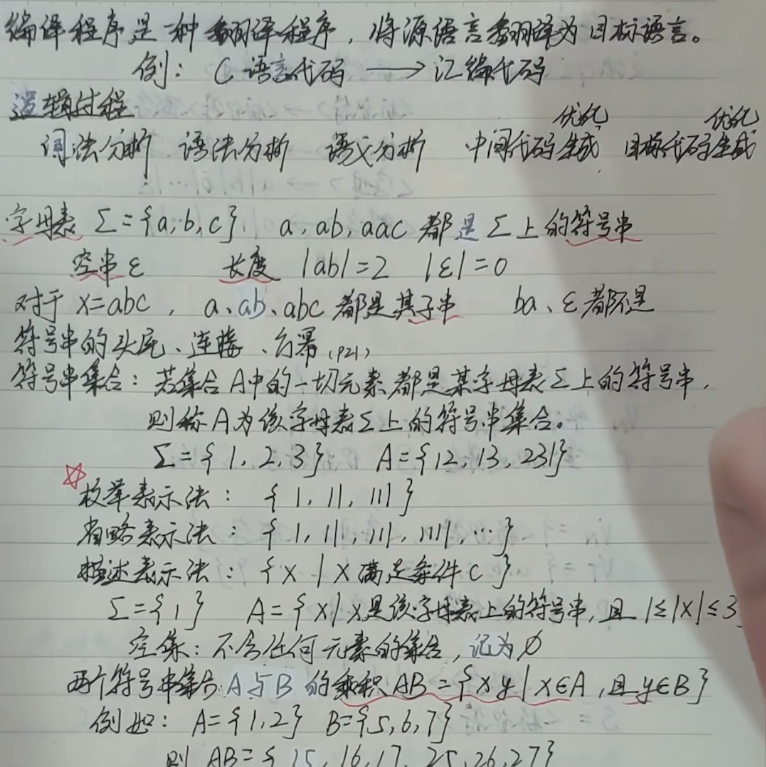 编译程序是一种翻译程序，将源语言翻译为目标语言。
例：C语言代码 → 汇编代码
逻辑过程
优化 优化
词法分析 语法分析 语义分析 中间代码生成 目标代码生成
字母表 Σ={a,b,c}. a, ab, aac 都是Σ上的符号串
空串ε 长度 |ab|=2 |ε|=0
对于 x=abc, a、ab、abc 都是其子串 ba、ε都不是
符号串的头尾、连接、方幂(P21)
符号串集合：若集合A中的一切元素都是某字母表Σ上的符号串，
则称A为该字母表Σ上的符号串集合。
Σ={1,2,3} A={12,13,231}
枚举表示法：{1, 11, 111}
省略表示法：{1, 11, 111, 1111, …}
描述表示法：{x|x满足条件c}
Σ={1} A={x|x是该字母表上的符号串，且1≤|x|≤3
空集：不含任何元素的集合，记为∅
两个符号串集合A与B的乘积AB={xy|x∈A,且y∈B}
例如：A={1,2} B={5,6,7}
则 AB={15, 16, 17, 25, 26, 27}